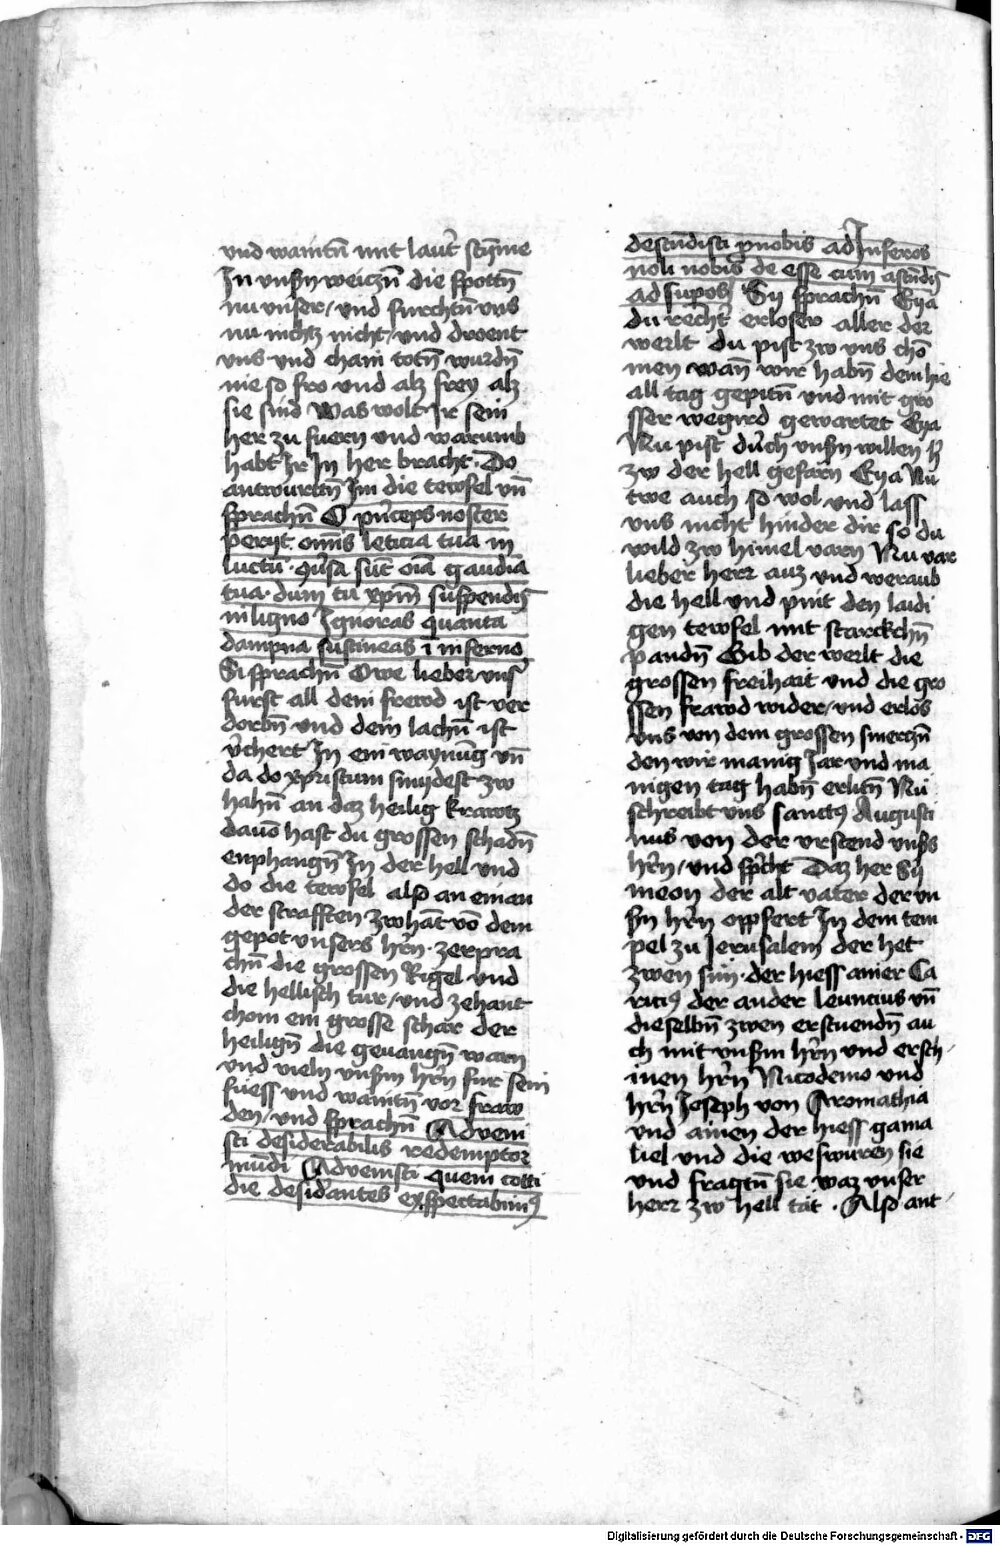 und waintn̄ mit laut̾ stȳme
In unsn̄ weiczn̄ die spottn̄
nu unser / und furchtn̄ uns
nu nichtz nicht / und droent
uns und cham totn̄ wurdn̄
nie so fro und alz frey alz
sie sind Was wolt Ir sein
her zu fuern und warumb
habt Ir In her bracht. Do
antwurttn̄ Im die tewfel un̄
sprachn̄ O prīceps noster
perijt om̄is leticia tua in
luctū. vʼsa sūt oīa gaudia
tua. dum tu xpm̄ suspendis
in ligno Ignoras quanta
dampna sustineas ī inferno
Si sprachn̄ Owe lieber uns̾
furst all dein frewd ist ver
dorbn̄ und dein lachn̄ ist
v̾chert In ein waynūg un̄
da do xpristum smydest zw
hahn̄ an daz heilig krawtz
dauō hast du grossen schadn̄
enphangn̄ In der hell und
do die tewfel also an einan
der strafften zwhāt vō dem
gepot unsers hr̄n. zerpra
chn̄ die grossen Rigel und
die hellisch tur / und zehant
chom ein grosse schar der
heilign̄ die geuangn̄ warn
und vieln unsm hr̄n fur sein
fuess und waintn̄ vor fraw
den / und sprachn̄ Adveni
sti desiderabilis redemptor
mūdi Advenisti quem cotti
die desid̾antes exspectabimꝰ
descēdisti pnobis ad Inferos
noli nobis de esse cum ascēdis
ad supos / Sy sprachn̄ Eya
du recht̾ erloser aller der
werlt du pist zw uns chō
men wan̄ wir habn̄ dem hie
all tag gepitn̄ und mit gro
sser wegird gewartet Eya
Nu pist durch unsn willen h̾
zw der hell gefarn Eya Nu
twe auch so wol und lass
uns nicht hinder dir so du
wild zw himel varn Nu var
lieber herr auz und weraub
die hell und pint den laidi
gen tewfel mit starckchn̄
pandn̄ Gib der werlt die
grossen freihait und die gro
ssen frawd wider / und erlos
uns von dem grossen smerczn̄
den wir manig Jar und ma
nigen tag habn̄ erlitn̄ Nu
schreibt uns sanctꝰ Augusti
nus von der urstend unss̾s
hr̄n / und sp̾cht Daz her Sy
meon der alt vater der un
sn hr̄n oppfert In dem tem
pel zu Jerusalem der het
zwen sun. der hiess ainer Ca
ricꝰ der ander leuncius un̄
dieselbn̄ zwen erstuendn̄ au
ch mit unsm hr̄n und ersch
inen hr̄n Nicodemo und
hr̄n Joseph von Aromathia
und ainen der hiess gama
liel und die weswuren sie
und fragtn̄ sie waz unser
herr zw hell tat. Also ant

Digitalisierung gefördert durch die Deutsche Forschungsgemeinschaft - DFG